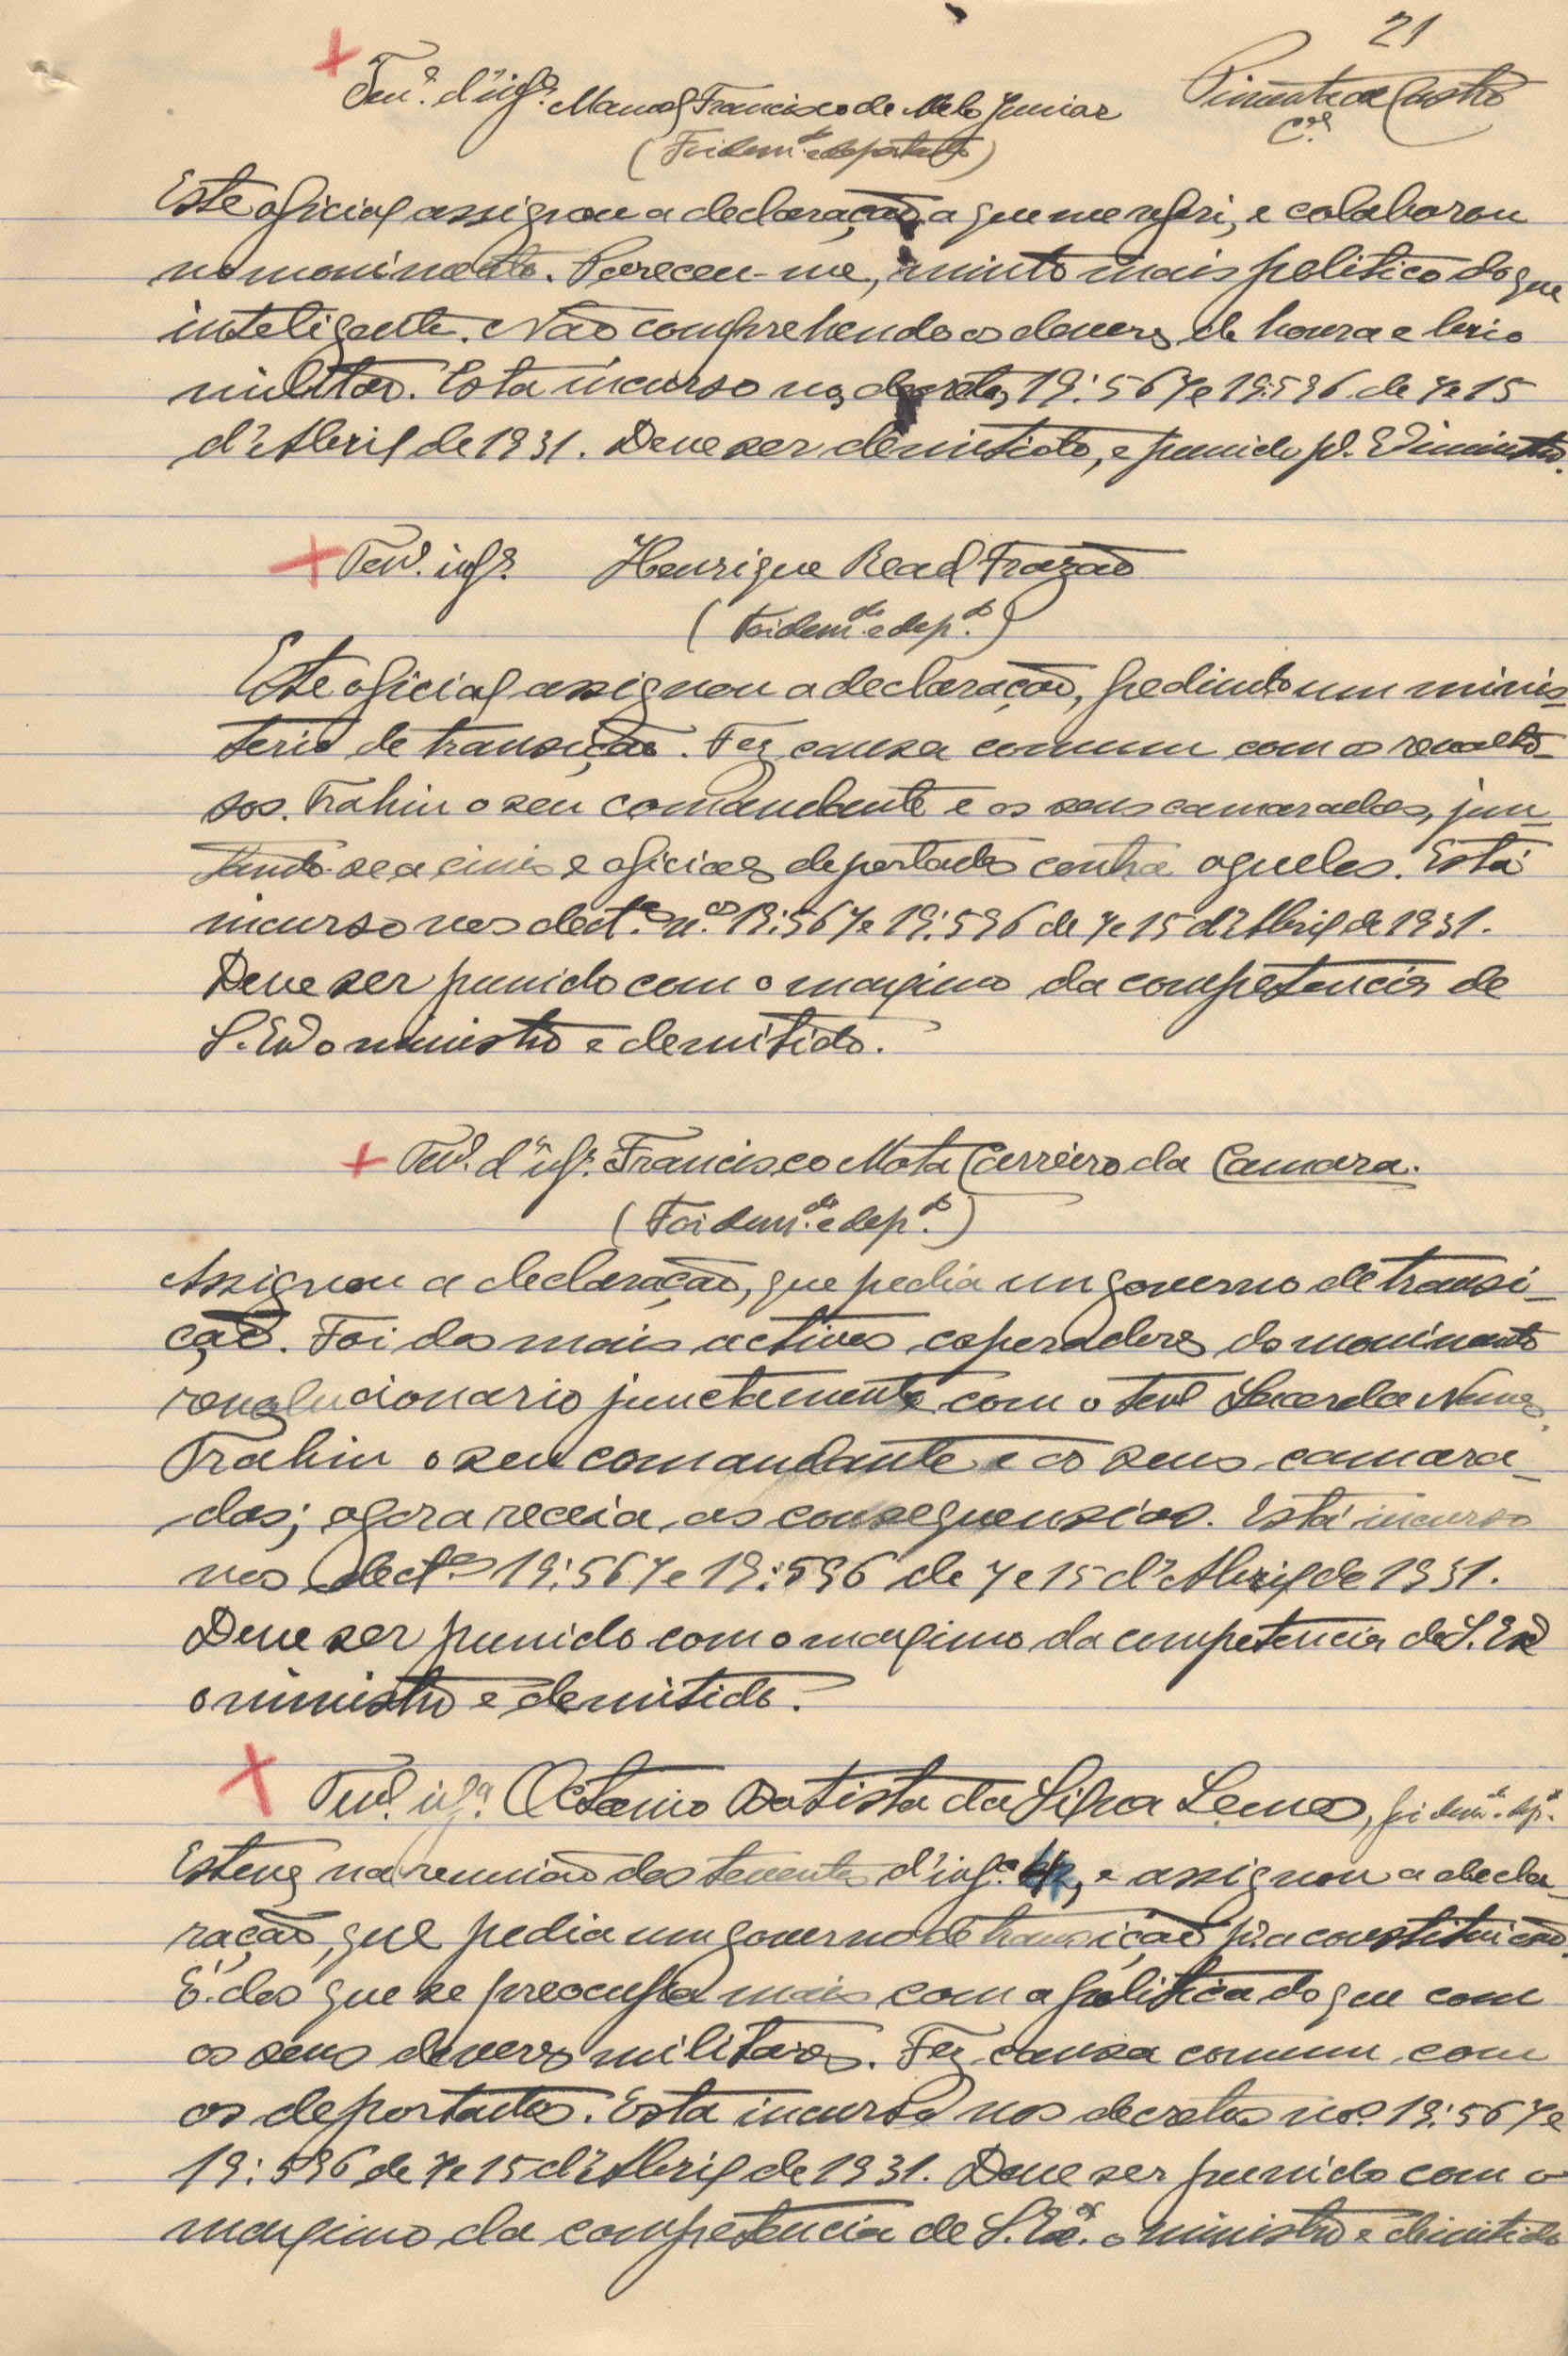 21
Pimenta de Castro
Cor.el
Ten.e d'inf.a Manoel Francisco de Melo Junior
(Foi dem.do e deportado)
Este oficial assignou a declaração a que me referi, e colaborou
no movimento. Pareceu-me, muito mais politico do que
inteligente. Não comprehende os deveres de honra e brio
militar. Está incurso nos decretos 19:567 e 19:596 de 7 e 15
d'Abril de 1931. Deve ser demitido, e punido p.r S. Ex.a o ministro.
Ten.e inf.a Henrique Read Frazão
(Foi dem.do e dep.do)
Este oficial assignou a declaração, pedindo um minis-
terio de transição. Fez causa comum com os revolto-
sos. Trahiu o seu comandante e os seus camaradas, jun-
tando-se a civis e oficiaes deportados contra aqueles. Está
incurso nos dect.os n.os 19:567 e 19:596 de 7 e 15 d'Abril de 1931.
Deve ser punido com o maximo da competencia de
S. Ex.a o ministro e demitido.
Ten.e d'inf.a Francisco Mota Carreiro da Camara.
(Foi dem.do e dep.do)
Assignou a declaração, que pedia um governo de transi-
ção. Foi dos mais activos coperadores do movimento
revolucionario junctamente com o ten.e Lacerda Nunes.
Trahiu o seu comandante e os seus camara-
das; agora receia as consequensias. Está incurso
nos dect.os 19:567 e 19:596 de 7 e 15 d'Abril de 1931.
Deve ser punido com o maximo da competencia de S. Ex.a
o ministro e demitido.
Ten.e inf.a Octavio Batista da Silva Lemos, foi dem.do e dep.do
Esteve na reunião dos tenentes d'inf.a e assignou a decla-
ração, que pedia um governo de transição p.a a constituição.
É dos que se preocupa mais com a politica do que com
os seus deveres militares. Fez causa comum com
os deportados. Está incurso nos decretos nos. 19:567 e
19:596 de 7 e 15 d'Abril de 1931. Deve ser punido com o
maximo da competencia de S. Ex.a o ministro e dimitido